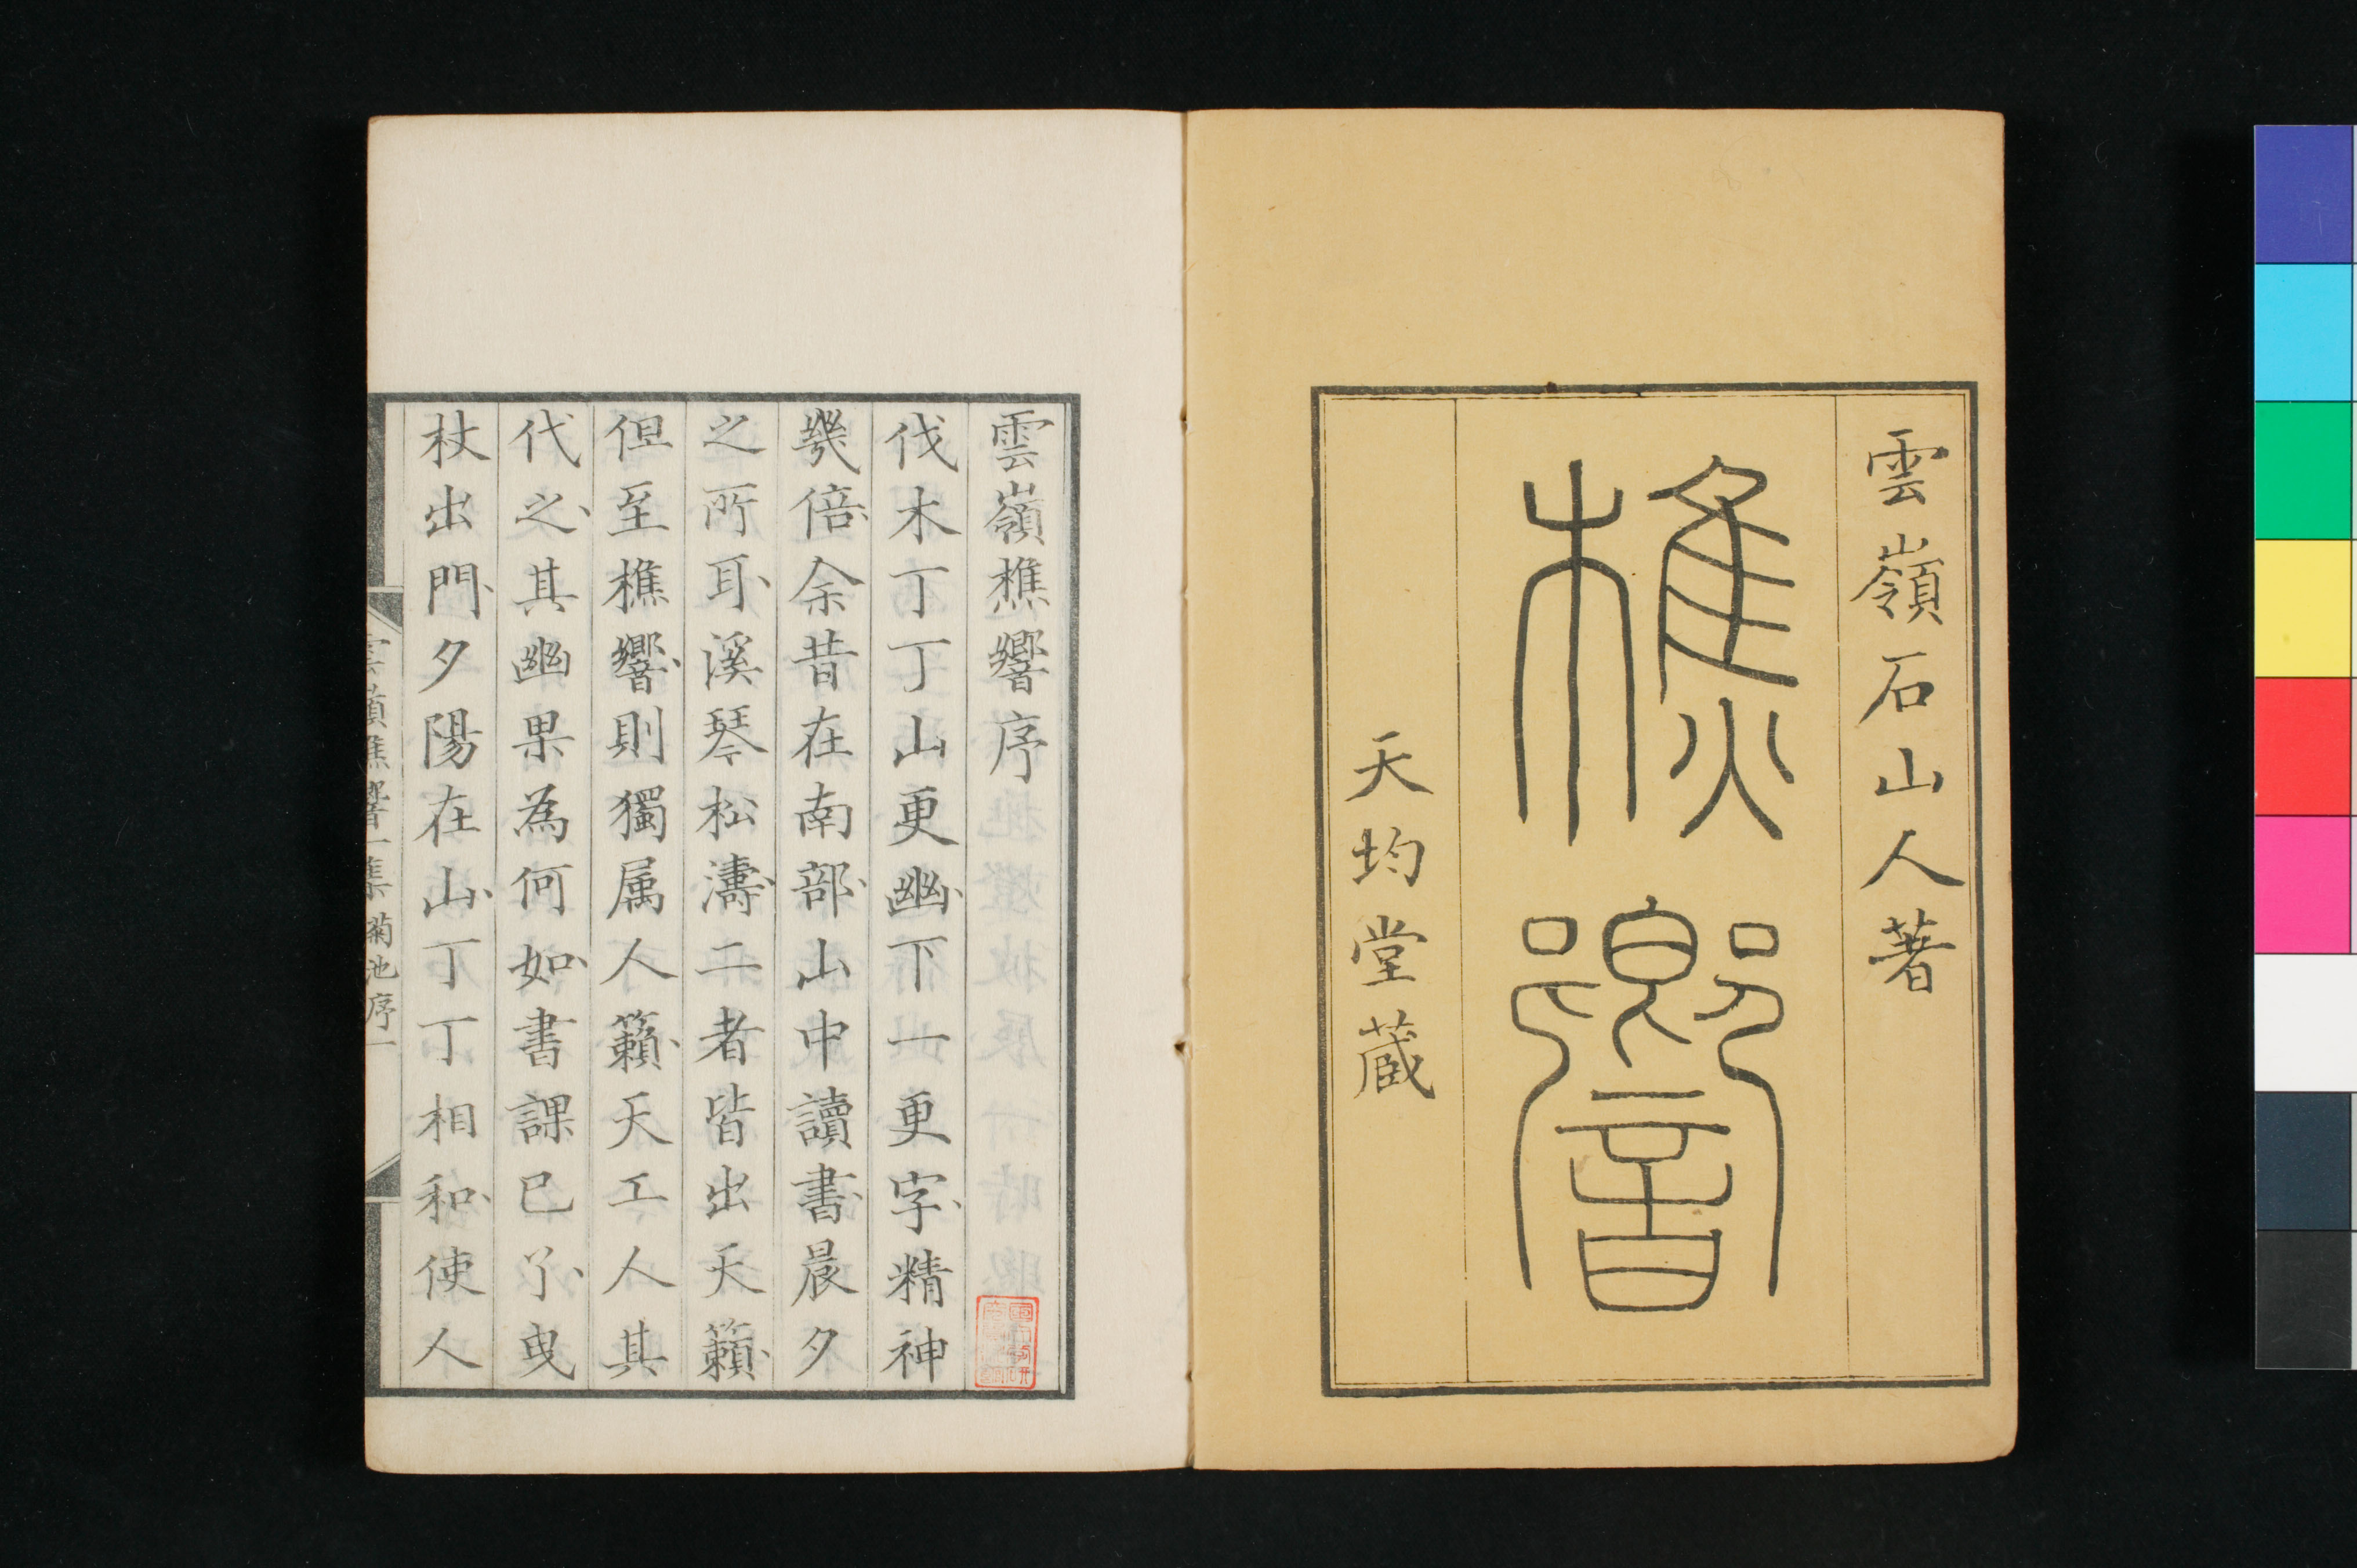 雲嶺石山人著
樵響
天均堂蔵
雲嶺樵響序
伐木丁丁山更幽下一更字精神
幾倍余昔在南部山中讀書晨夕
之所耳溪琴松濤二者皆出天籟
但至樵響則獨属人籟天工人其
代之其幽果為何如書課已了曳
杖出門夕陽在山丁丁相和使人
雲嶺樵響一集 菊池序 一